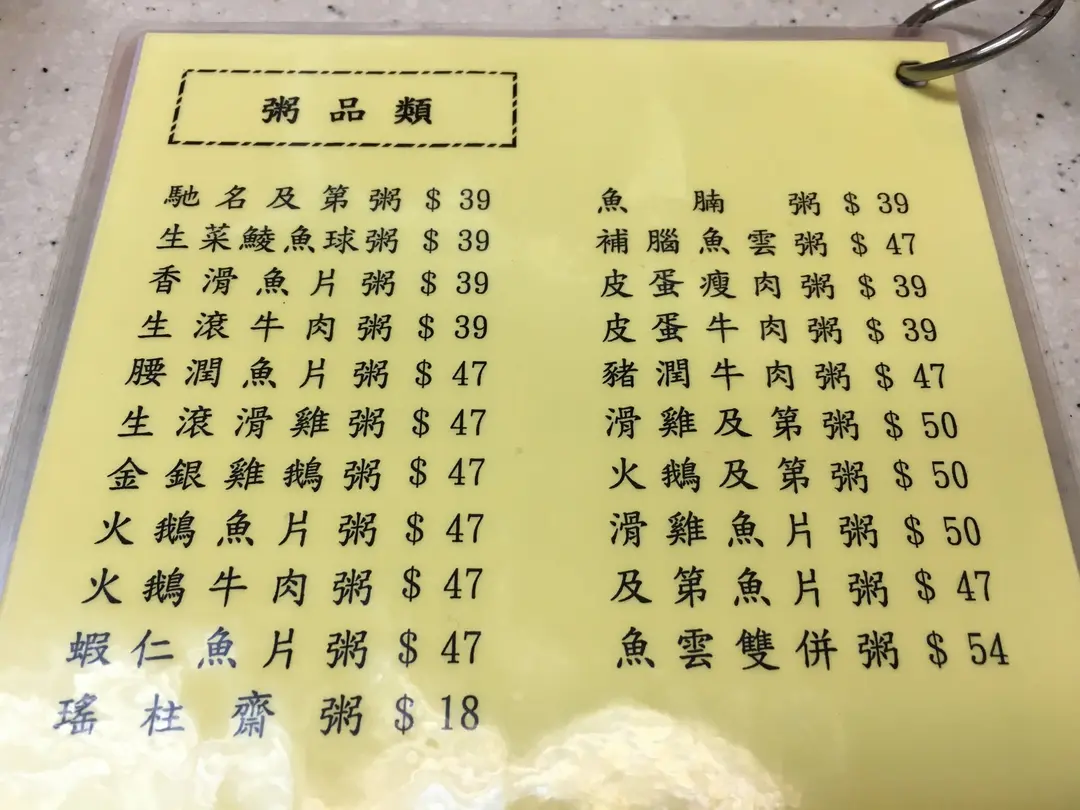 粥品類
馳名及第粥 $ 39
生菜鯪魚球粥 $ 39
香滑魚片粥 $ 39
生滾牛肉粥 $ 39
腰潤魚片粥 $ 47
生滾滑雞粥 $ 47
金銀雞鵝粥 $ 47
火鵝魚片粥 $ 47
火鵝牛肉粥 $ 47
蝦仁魚片粥 $ 47
瑤柱齋粥 $ 18
魚腩粥 $ 39
補腦魚雲粥 $ 47
皮蛋瘦肉粥 $ 39
皮蛋牛肉粥 $ 39
豬潤牛肉粥 $ 47
滑雞及第粥 $ 50
火鵝及第粥 $ 50
滑雞魚片粥 $ 50
及第魚片粥 $ 47
魚雲雙併粥 $ 54